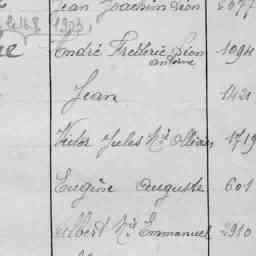 Jean Joachim Léon 2077
1923
André Frédéric Léon 1094
antoine
Jean 1421
Victor Jules Mie Olivier 1719
Eugène Auguste 601
Albert Mie Emmanuel 2910